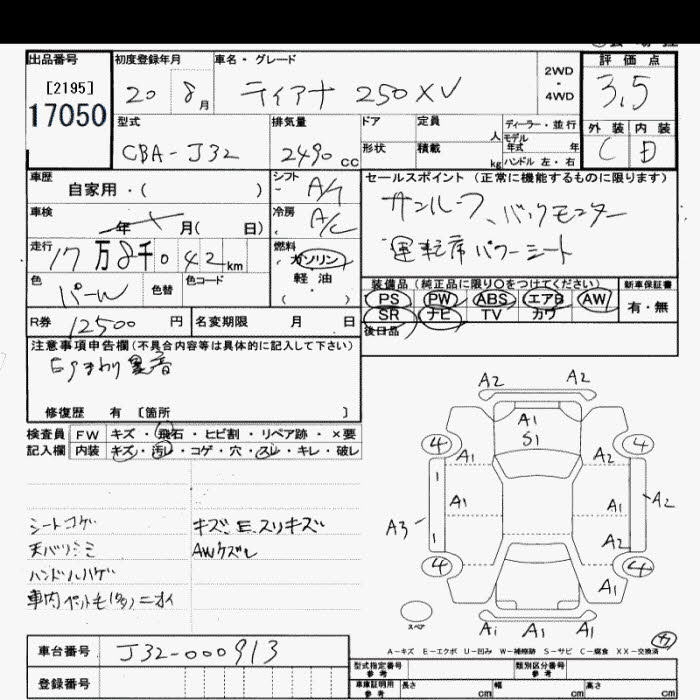 出品番号 初度登録年月 車名・グレード 評価点
[2195]
17050
20 8月 ティアナ 250XV 2WD・4WD 3.5
型式 排気量 ドア 定員 人 ディーラー・並行 外装 内装
CBA-J32 2490cc 形状 積載 kg モデル年式 年 ハンドル 左・右 C D
車歴 シフト セールスポイント(正常に機能するものに限ります)
自家用・( ) A/T サンルーフ、バックモニター
車検 年 月( 日) 冷房 A/C
運転席パワーシート
走行 17万8千042km 燃料 ガソリン 軽油 ( ・ )
色 パール 色替 色コード
装備品(純正品に限り○をつけてください) 新車保証書
PS PW ABS エアB AW 有・無
SR ナビ TV カワ
後日品
R券 12500円 名変期限 月 日
注意事項申告欄(不具合内容等は具体的に記入して下さい)
Egまわり異音
修復歴 有 [箇所 ]
検査員 FW キズ・飛石・ヒビ割・リペア跡・×要
記入欄 内装 キズ・汚レ・コゲ・穴・スレ・キレ・破レ
シートコゲ キズ、E、スリキズ
天バリシミ AWケズレ
ハンドルハゲ
車内ペット毛(多)ニオイ
A2 A2
A1
S1
4 4
A1 A2
1 A1 A1 A2
A3
1 A2
4 4
A1
スペア
A1 A1 A1
A-キズ E-エクボ U-凹み W-補修跡 S-サビ C-腐食 XX-交換済
車台番号 J32-000913
登録番号
型式指定番号 参考 類別区分番号 参考
車庫証明用 参考 長さ cm 幅 cm 高さ cm